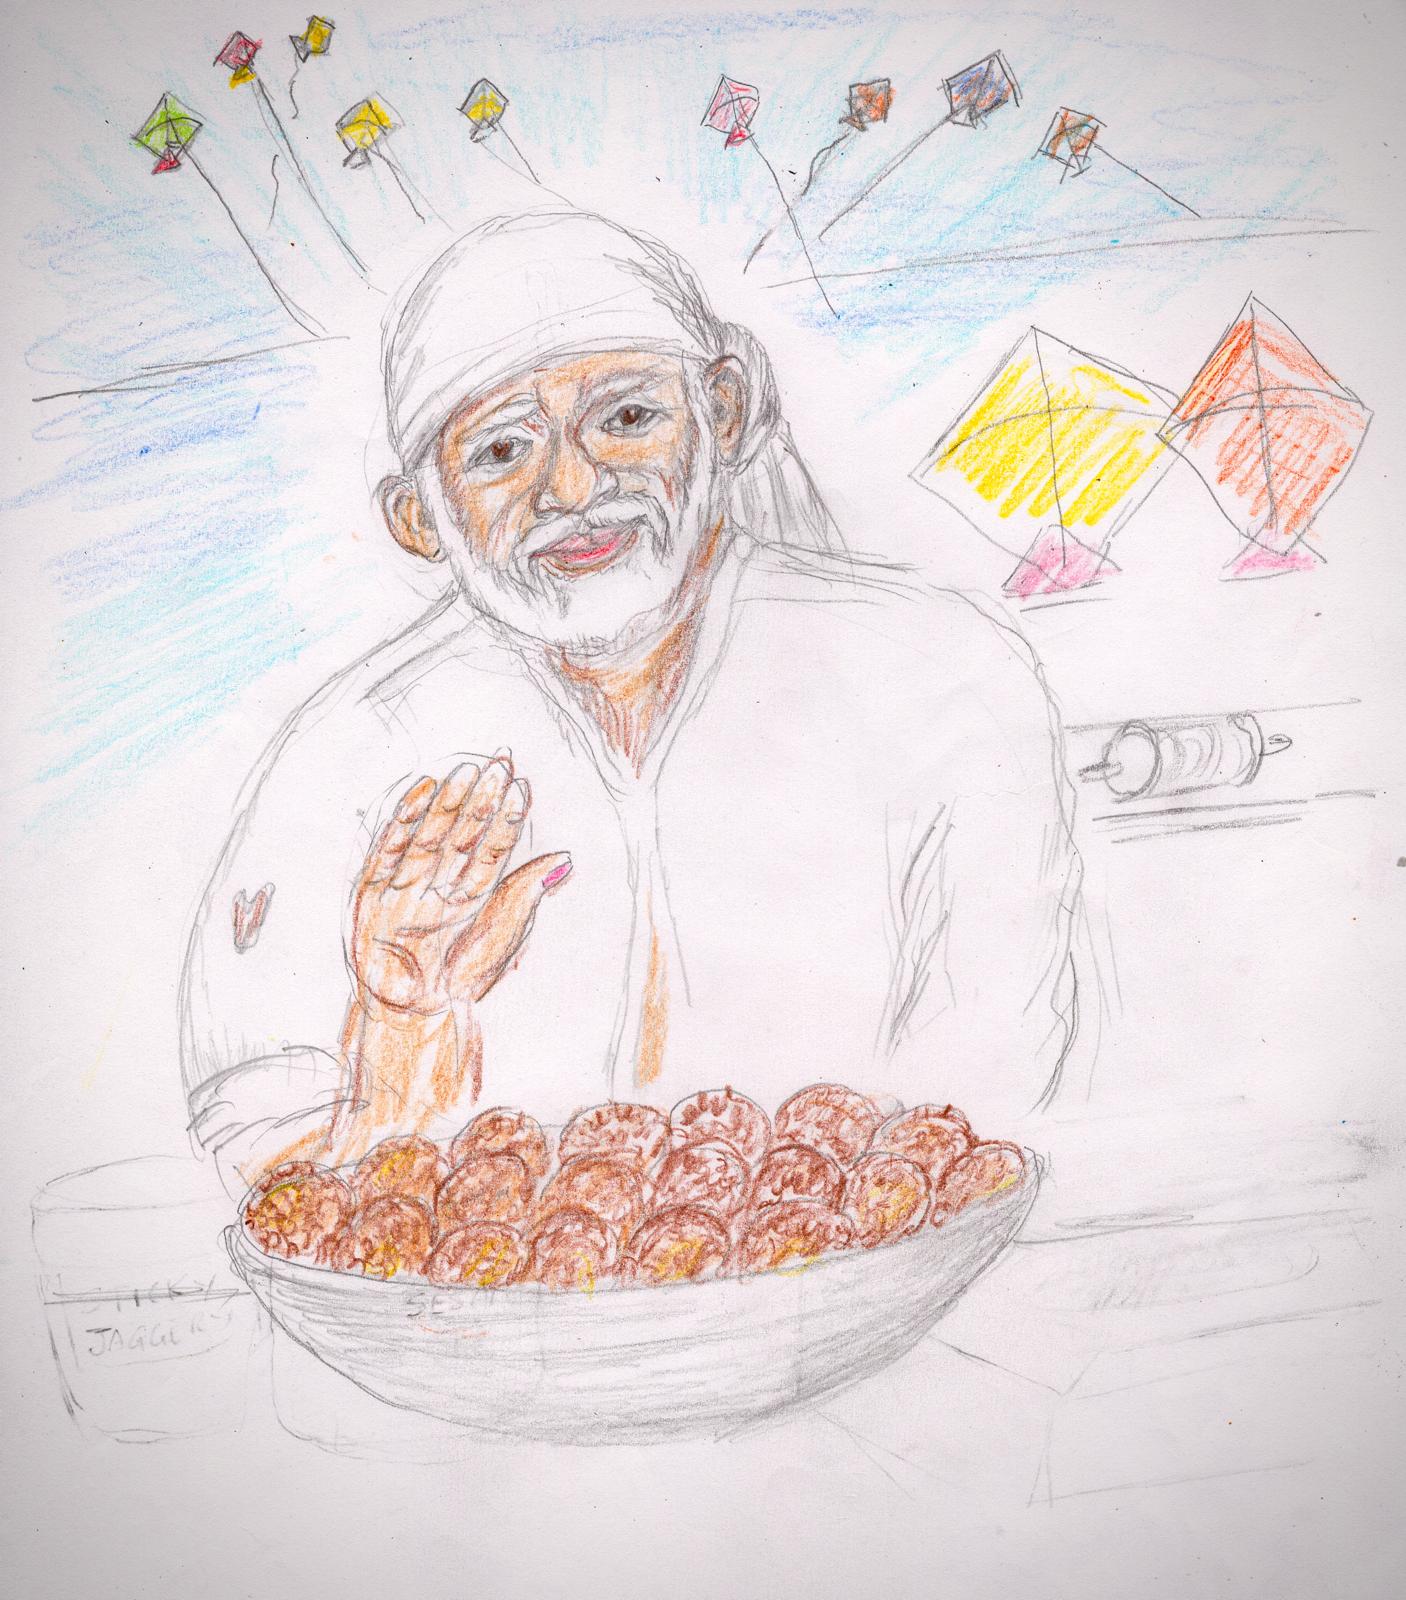 STICKY
JAGGERY
SESA